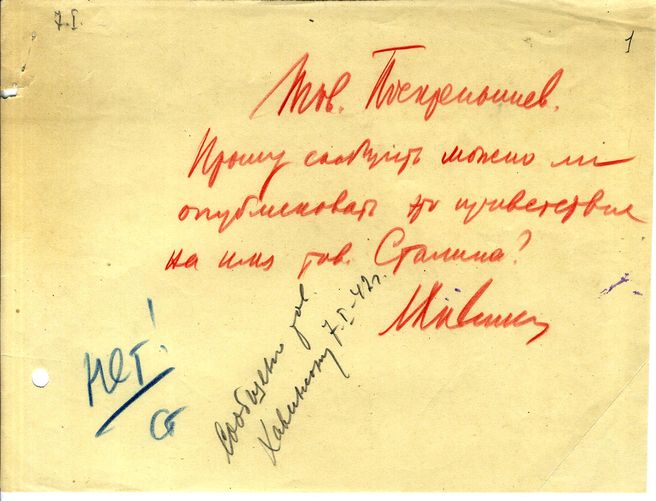 7.I.
1
Тов. Поскребышев.
Прошу сообщить можно ли
опубликовать это приветствие
на имя тов. Сталина?
Хавинсон
Нет!
Сообщено тов.
Хавинсону 7.I-42г.